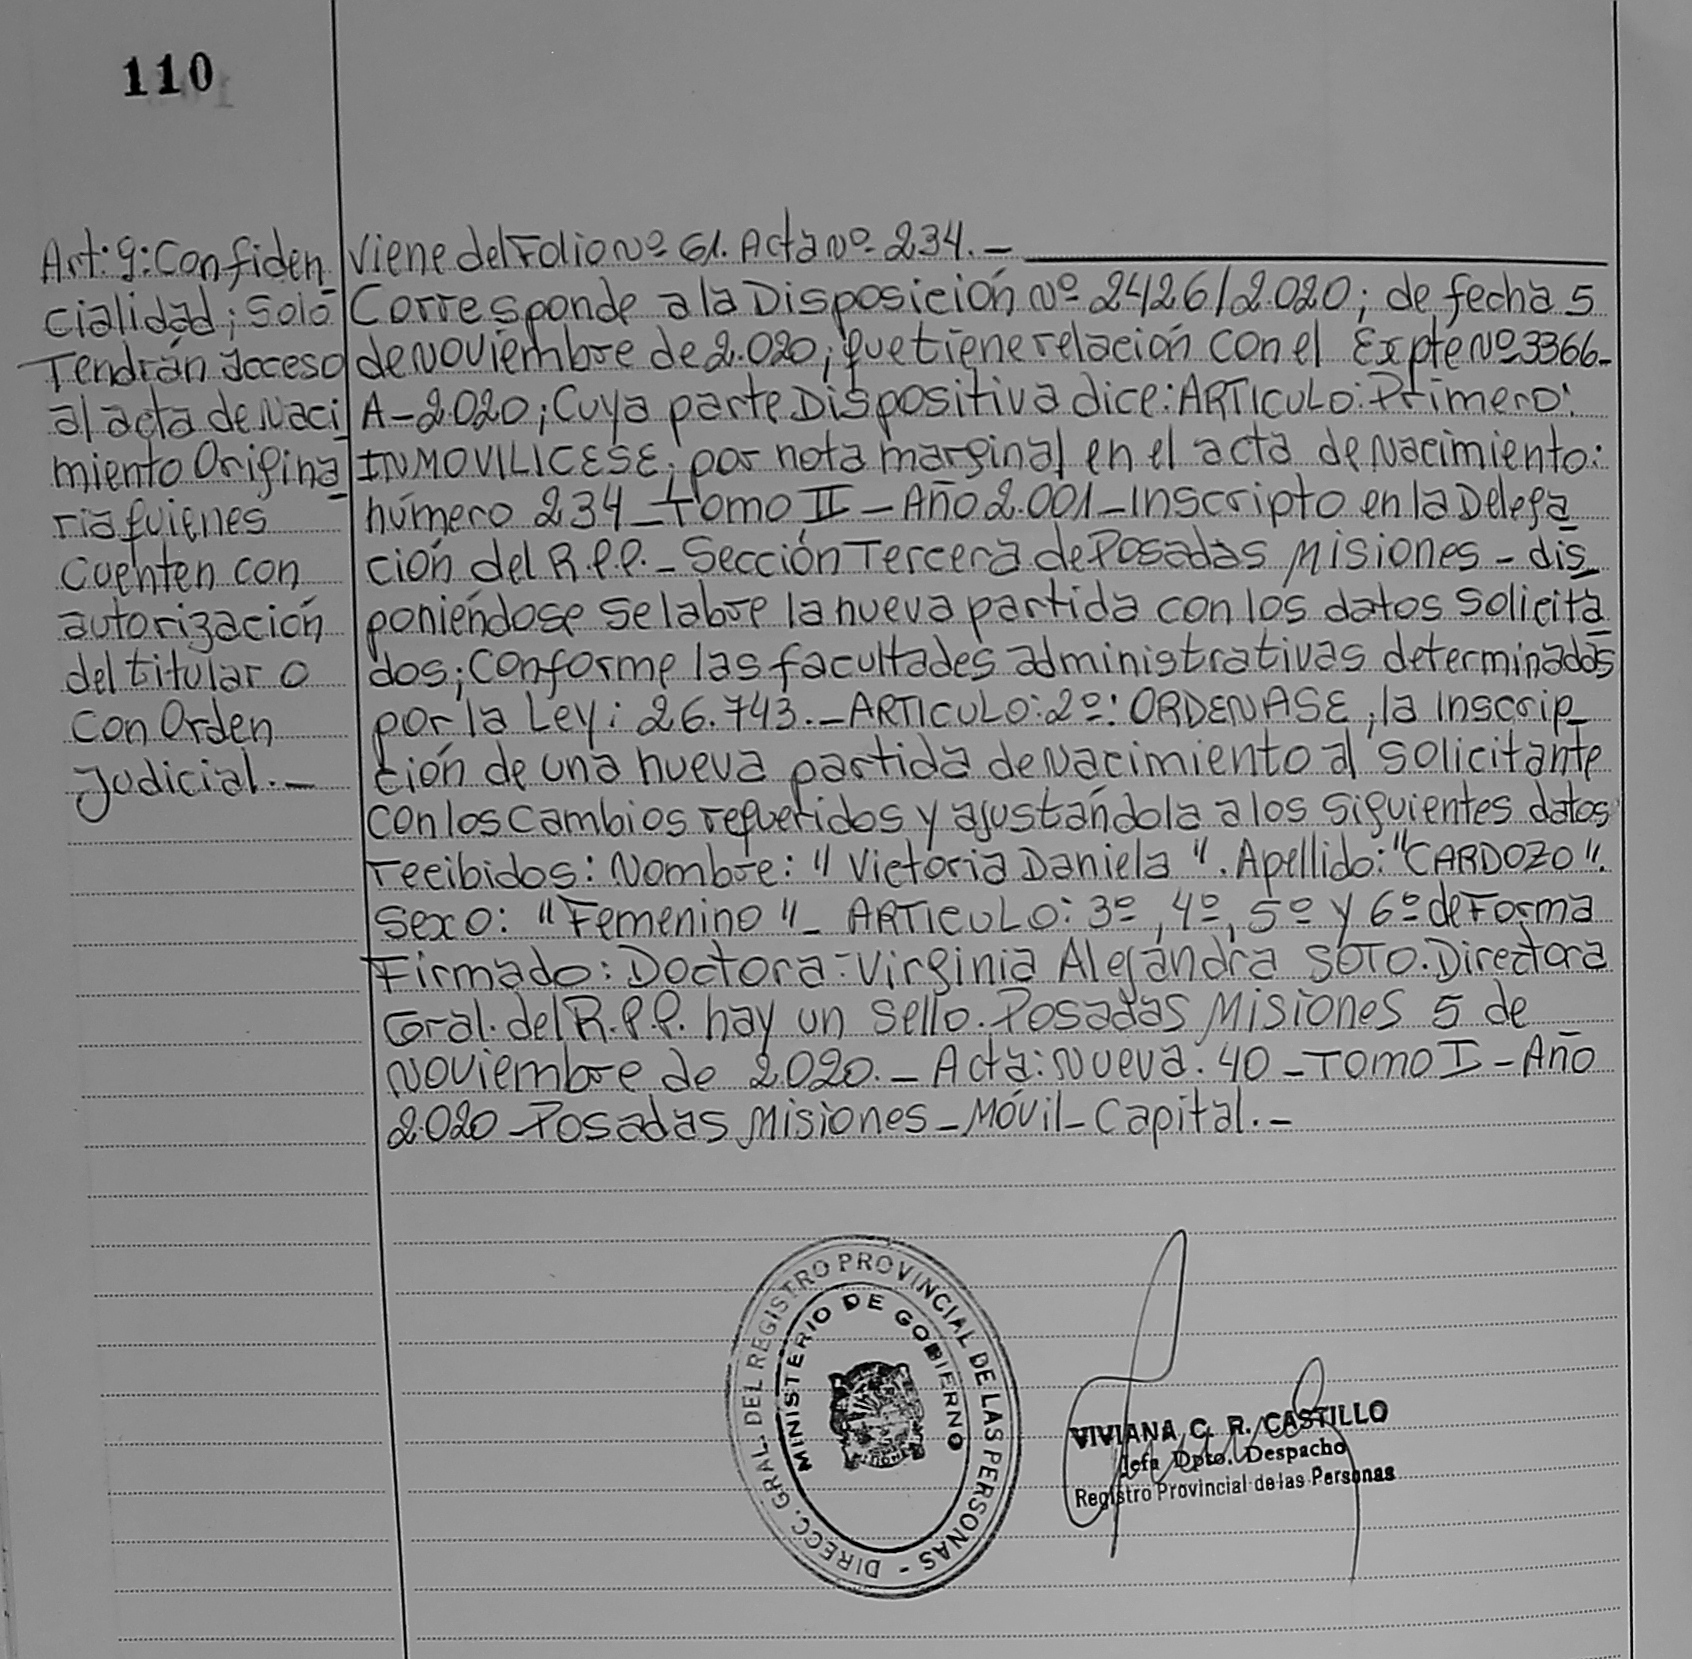 110
Art: 9: Confiden
cialidad; Solo
Tendrán acceso
al acta de Naci
miento Origina
ria quienes
Cuenten con
autorización
del titular o
Con Orden
Judicial.-
Viene del Folio Nº 61. Acta Nº 234.-
Corresponde a la Disposición Nº 2426/2.020; de fecha 5
de Noviembre de 2.020; que tiene relación con el Expte Nº 3366-
A-2020; Cuya parte Dispositiva dice: ARTICULO: Primero:
INMOVILICESE; por nota marginal en el acta de Nacimiento:
número 234-Tomo II-Año 2.001-Inscripto en la Delega
ción del R.P.P.-Sección Tercera de Posadas Misiones-dis
poniéndose se labre la nueva partida con los datos solicita
dos; conforme las facultades administrativas determinados
por la Ley: 26.743.-ARTICULO: 2º: ORDENASE, la Inscrip
ción de una nueva partida de Nacimiento al solicitante
con los cambios requeridos y ajustándola a los siguientes datos
recibidos: Nombre: "Victoria Daniela". Apellido: "CARDOZO".
Sexo: "Femenino"- ARTICULO: 3º, 4º, 5º y 6º de Forma
Firmado: Doctora: Virginia Alejandra SOTO. Directora
Gral. del R.P.P. hay un sello. Posadas Misiones 5 de
Noviembre de 2.020.-Acta: Nueva: 40-Tomo I-Año
2.020-Posadas Misiones-Móvil-Capital.-
DIRECC. GRAL. DEL REGISTRO PROVINCIAL DE LAS PERSONAS -
MINISTERIO DE GOBIERNO
VIVIANA C. R. CASTILLO
Jefa Dpto. Despacho
Registro Provincial de las Personas